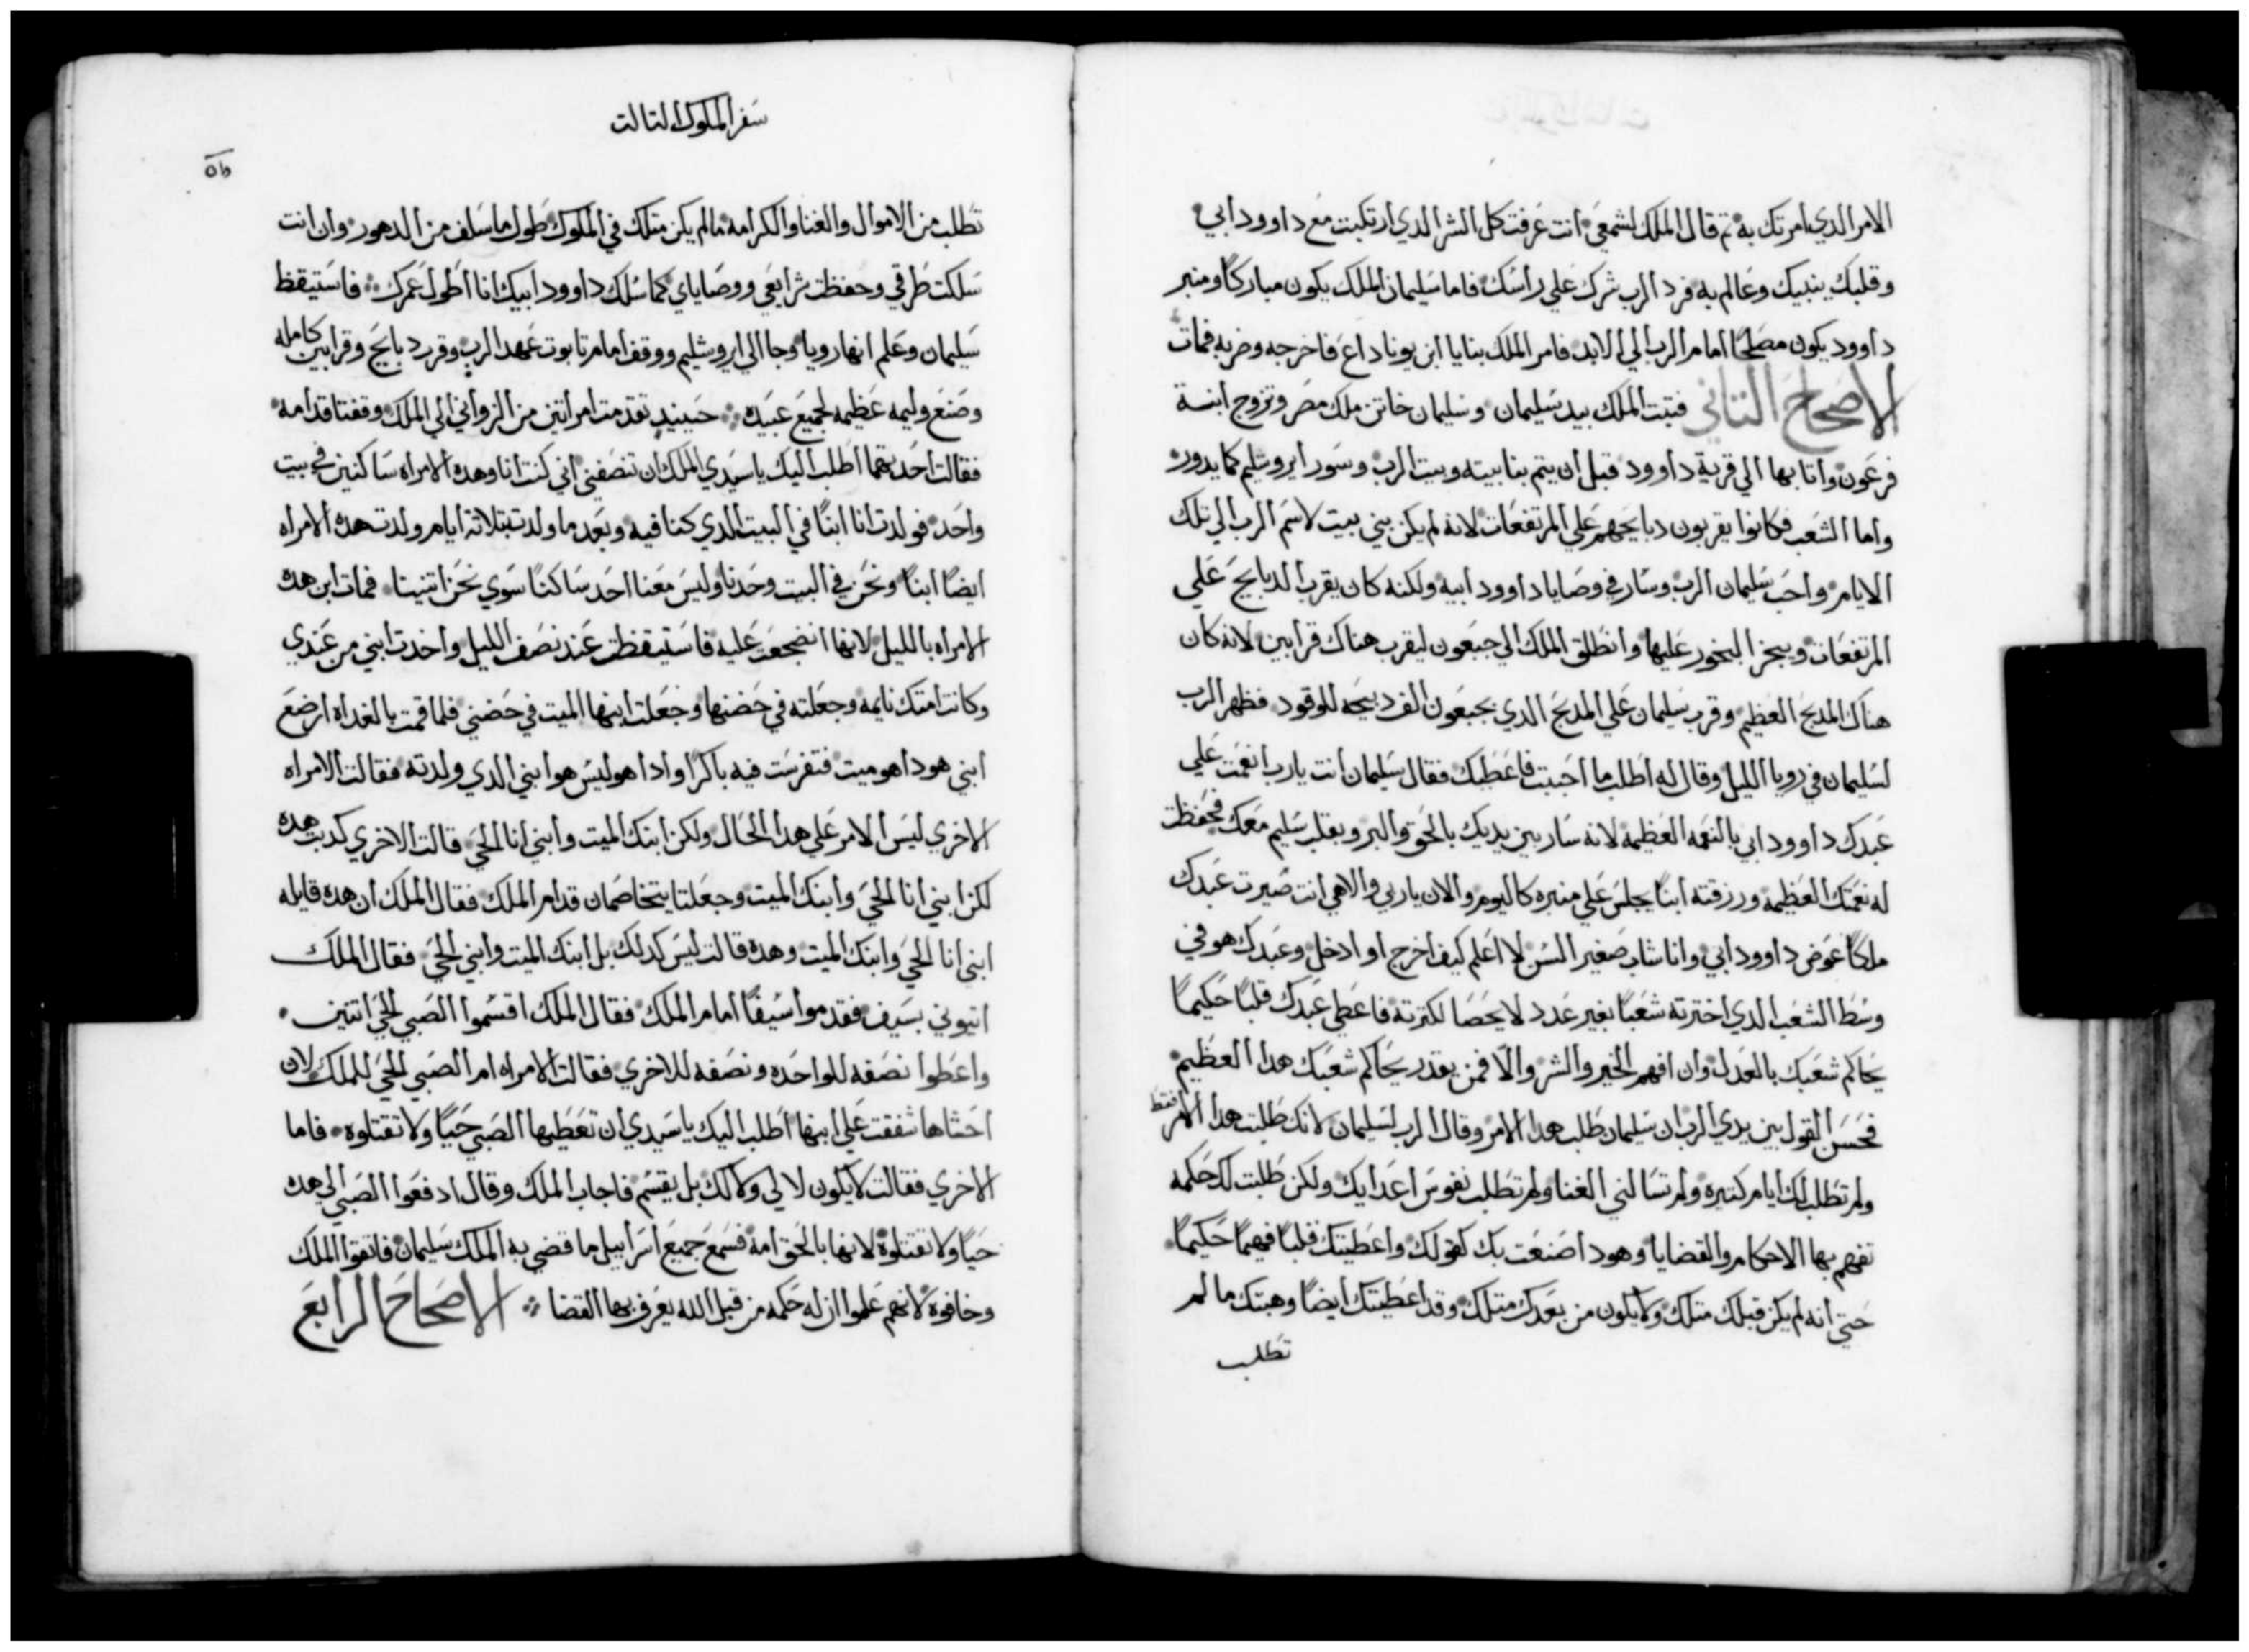 الامر الدي امرتك به تم قال الملك لشمعي انت عرفت كل الشر الدي ارتكبت مع داوود ابي
وقلبك ينبيك وعالم به فرد الرب شرك علي راسك فاما سليمان الملك يكون مباركاً ومنبر
داوود يكون مصلحاً امام الرب الي الابد فامر الملك بنايا ابن يوناداع فاخرجه وضربه فمات
الاصحاح التاني فتبت الملك بيد سليمان وسليمان خاتن ملك مصر وتزوج ابنة
فرعون واتا بها الي قرية داوود قبل ان يتم بنا بيته وبيت الرب وسور ايروشليم كما يدور
واما الشعب فكانوا يقربون دبايحهم علي المرتفعات لانه لم يكن بني بيت لاسم الرب الي تلك
الايام واحب سليمان الرب وسار في وصايا داوود ابيه ولكنه كان يقرب الدبايح علي
المرتفعات ويبخر البخور عليها وانطلق الملك الي جبعون ليقرب هناك قرابين لانه كان
هناك المدبح العظيم وقرب سليمان علي المدبح الدي بجبعون الف دبيحه للوقود فظهر الرب
لسليمان في رويا الليل وقال له اطلب ما احببت فاعطيك فقال سليمان انت يارب انعمت علي
عبدك داوود ابي بالنعمه العظيمه لانه سار بين يديك بالحق والبر وبقلب سليم معك فحفظت
له نعمتك العظيمه ورزقته ابناً يجلس علي منبره كاليوم والان ياربي والاهي انت صيرت عبدك
ملكاً عوض داوود ابي وانا شاب صغير السن لا اعلم كيف اخرج او ادخل وعبدك هو في
وسط الشعب الدي اخترته شعباً بغير عدد لا يحصا لكترته فاعطي عبدك قلباً حكيماً
يحاكم شعبك بالعدل وان افهم الخير والشر والا فمن يقدر يحاكم شعبك هدا العظيم
فحسن القول بين يدي الرب ان سليمان طلب هدا الامر وقال الرب لسليمان لانك طلبت هدا الامر فقط
ولم تطلب لك ايام كتيره ولم تسالني الغنا ولم تطلب نفوس اعدايك ولكن طلبت لك حكمه
تفهم بها الاحكام والقضايا وهودا صنعت بك كقولك واعطيتك قلباً فهيماً حكيماً
حتي انه لم يكن قبلك متلك ولا يكون من بعدك متلك وقد اعطيتك ايضاً وهبتك ما لم
تطلب
سفر الملوك التالت
تطلب من الاموال والغنا والكرامه ما لم يكن متلك في الملوك طول ما سلف من الدهور وان انت
سلكت طرقي وحفظت شرايعي ووصاياي كما سلك داوود ابيك انا اطول عمرك فاستيقظ
سليمان وعلم انها رويا وجا الي ايروشليم ووقف امام تابوت عهد الرب وقرب دبايح وقرابين كامله
وصنع وليمه عظيمه لجميع عبيده حينيد تقدمت امراتين من الزواني الي الملك وقفتا قدامه
فقالت احدتهما اطلب اليك ياسيدي الملك ان تنصفني اني كنت انا وهده الامراه ساكنين في بيت
واحد فولدت انا ابناً في البيت الدي كنا فيه وبعد ما ولدت بتلاتة ايام ولدت هده الامراه
ايضاً ابناً ونحن في البيت وحدنا وليس معنا احد ساكناً سوي نحن اتنيتنا فمات ابن هده
الامراه بالليل لانها انضجعت عليه فاستيقظت عند نصف الليل واخدت ابني من عندي
وكانت امتك نايمه وجعلته في حضنها وجعلت ابنها الميت في حضني فلما قمت بالغداه ارضع
ابني هودا هو ميت فتفرست فيه باكراً وادا هو ليس هو ابني الدي ولدته فقالت الامراه
الاخري ليس الامر علي هدا الحال ولكن ابنك الميت وابني انا الحي قالت الاخري كدبت هده
لكن ابني انا الحي وابنك الميت وجعلتا يتخاصمان قدام الملك فقال الملك ان هده قايله
ابني انا الحي وابنك الميت وهده قالت ليس كدلك بل ابنك الميت وابني الحي فقال الملك
اتيوني بسيف فقدموا سيفاً امام الملك فقال الملك اقسموا الصبي الحي اتنين
واعطوا نصفه للواحده ونصفه للاخري فقالت الامراه ام الصبي الحي للملك لان
احشاها شفقت علي ابنها اطلب اليك ياسيدي ان تعطيها الصبي حياً ولا تقتلوه فاما
الاخري فقالت لا يكون لا لي ولا لك بل يقسم فاجاب الملك وقال ادفعوا الصبي الي هده
حياً ولا تقتلوه لانها بالحق امه فسمع جميع اسراييل ما قضي به الملك سليمان فاتقوا الملك
وخافوه لانهم علموا ان له حكمه من قبل الله يعرف بها القضا الاصحاح الرابع